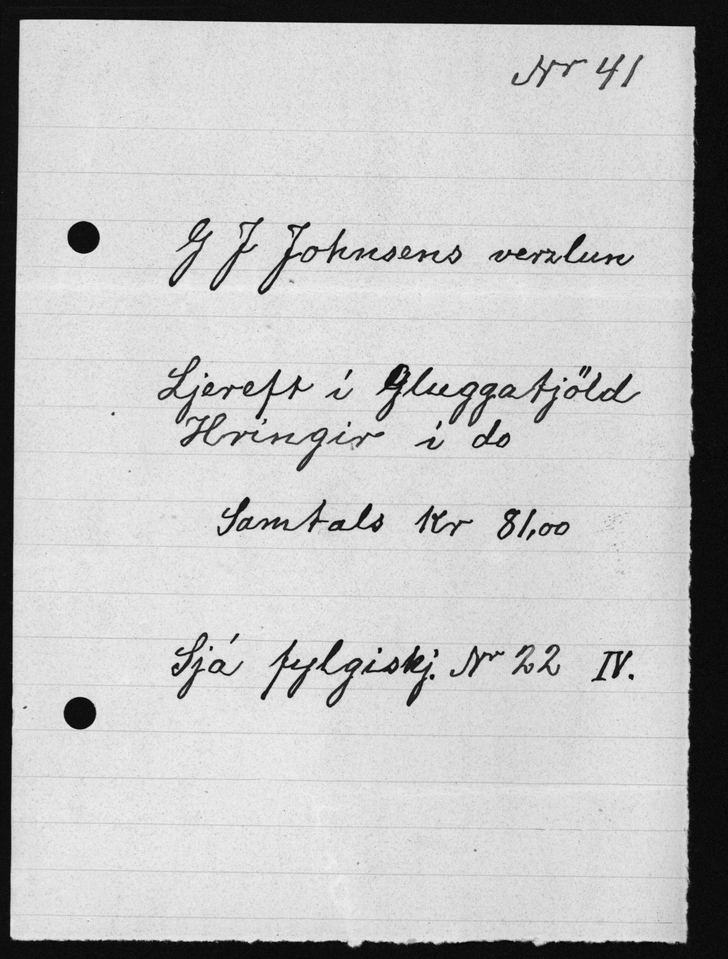 Nr 41
G J Johnsens verzlun
Ljereft í Gluggatjöld
Hringir í do
Samtals Kr 81,00
Sjá fylgiskj. Nr 22 IV.